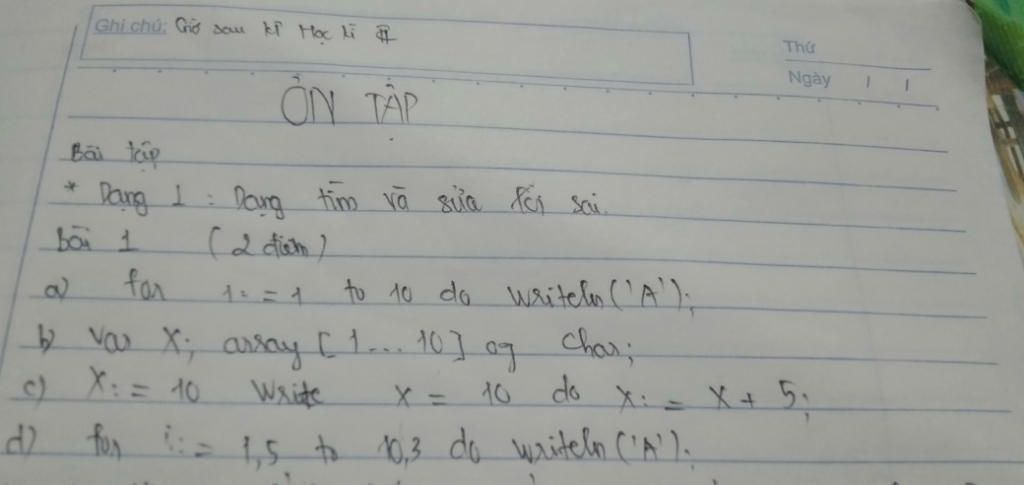 Ghi chú: Giờ sau kt Học kì II
Thứ
Ngày / /
ÔN TẬP
Bài tập
* Dạng 1 : Dạng tìm và sửa lỗi sai.
Bài 1 (2 điểm)
a) for 1:=1 to 10 do writeln('A');
b) var X; array [1...10] og char;
c) X:=10 Write x = 10 do x:= x + 5;
d) for i:= 1,5 to 10,3 do writeln('A');